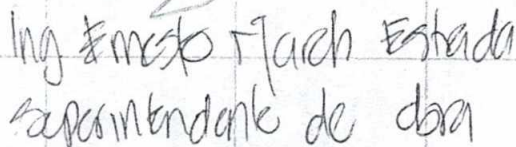 Ing Ernesto March Estrada
superintendente de obra